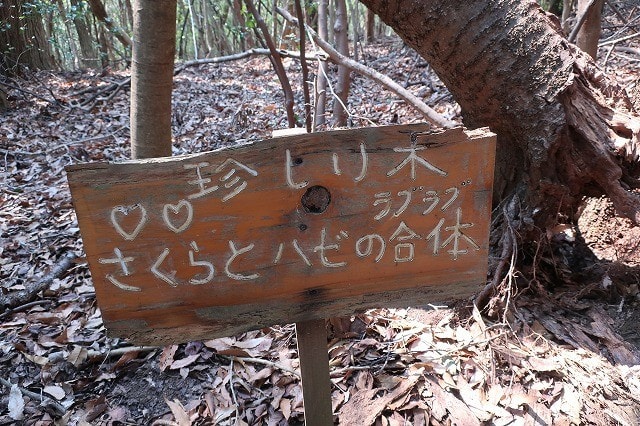 珍しい木
♡♡ ラブラブ
さくらとハゼの合体